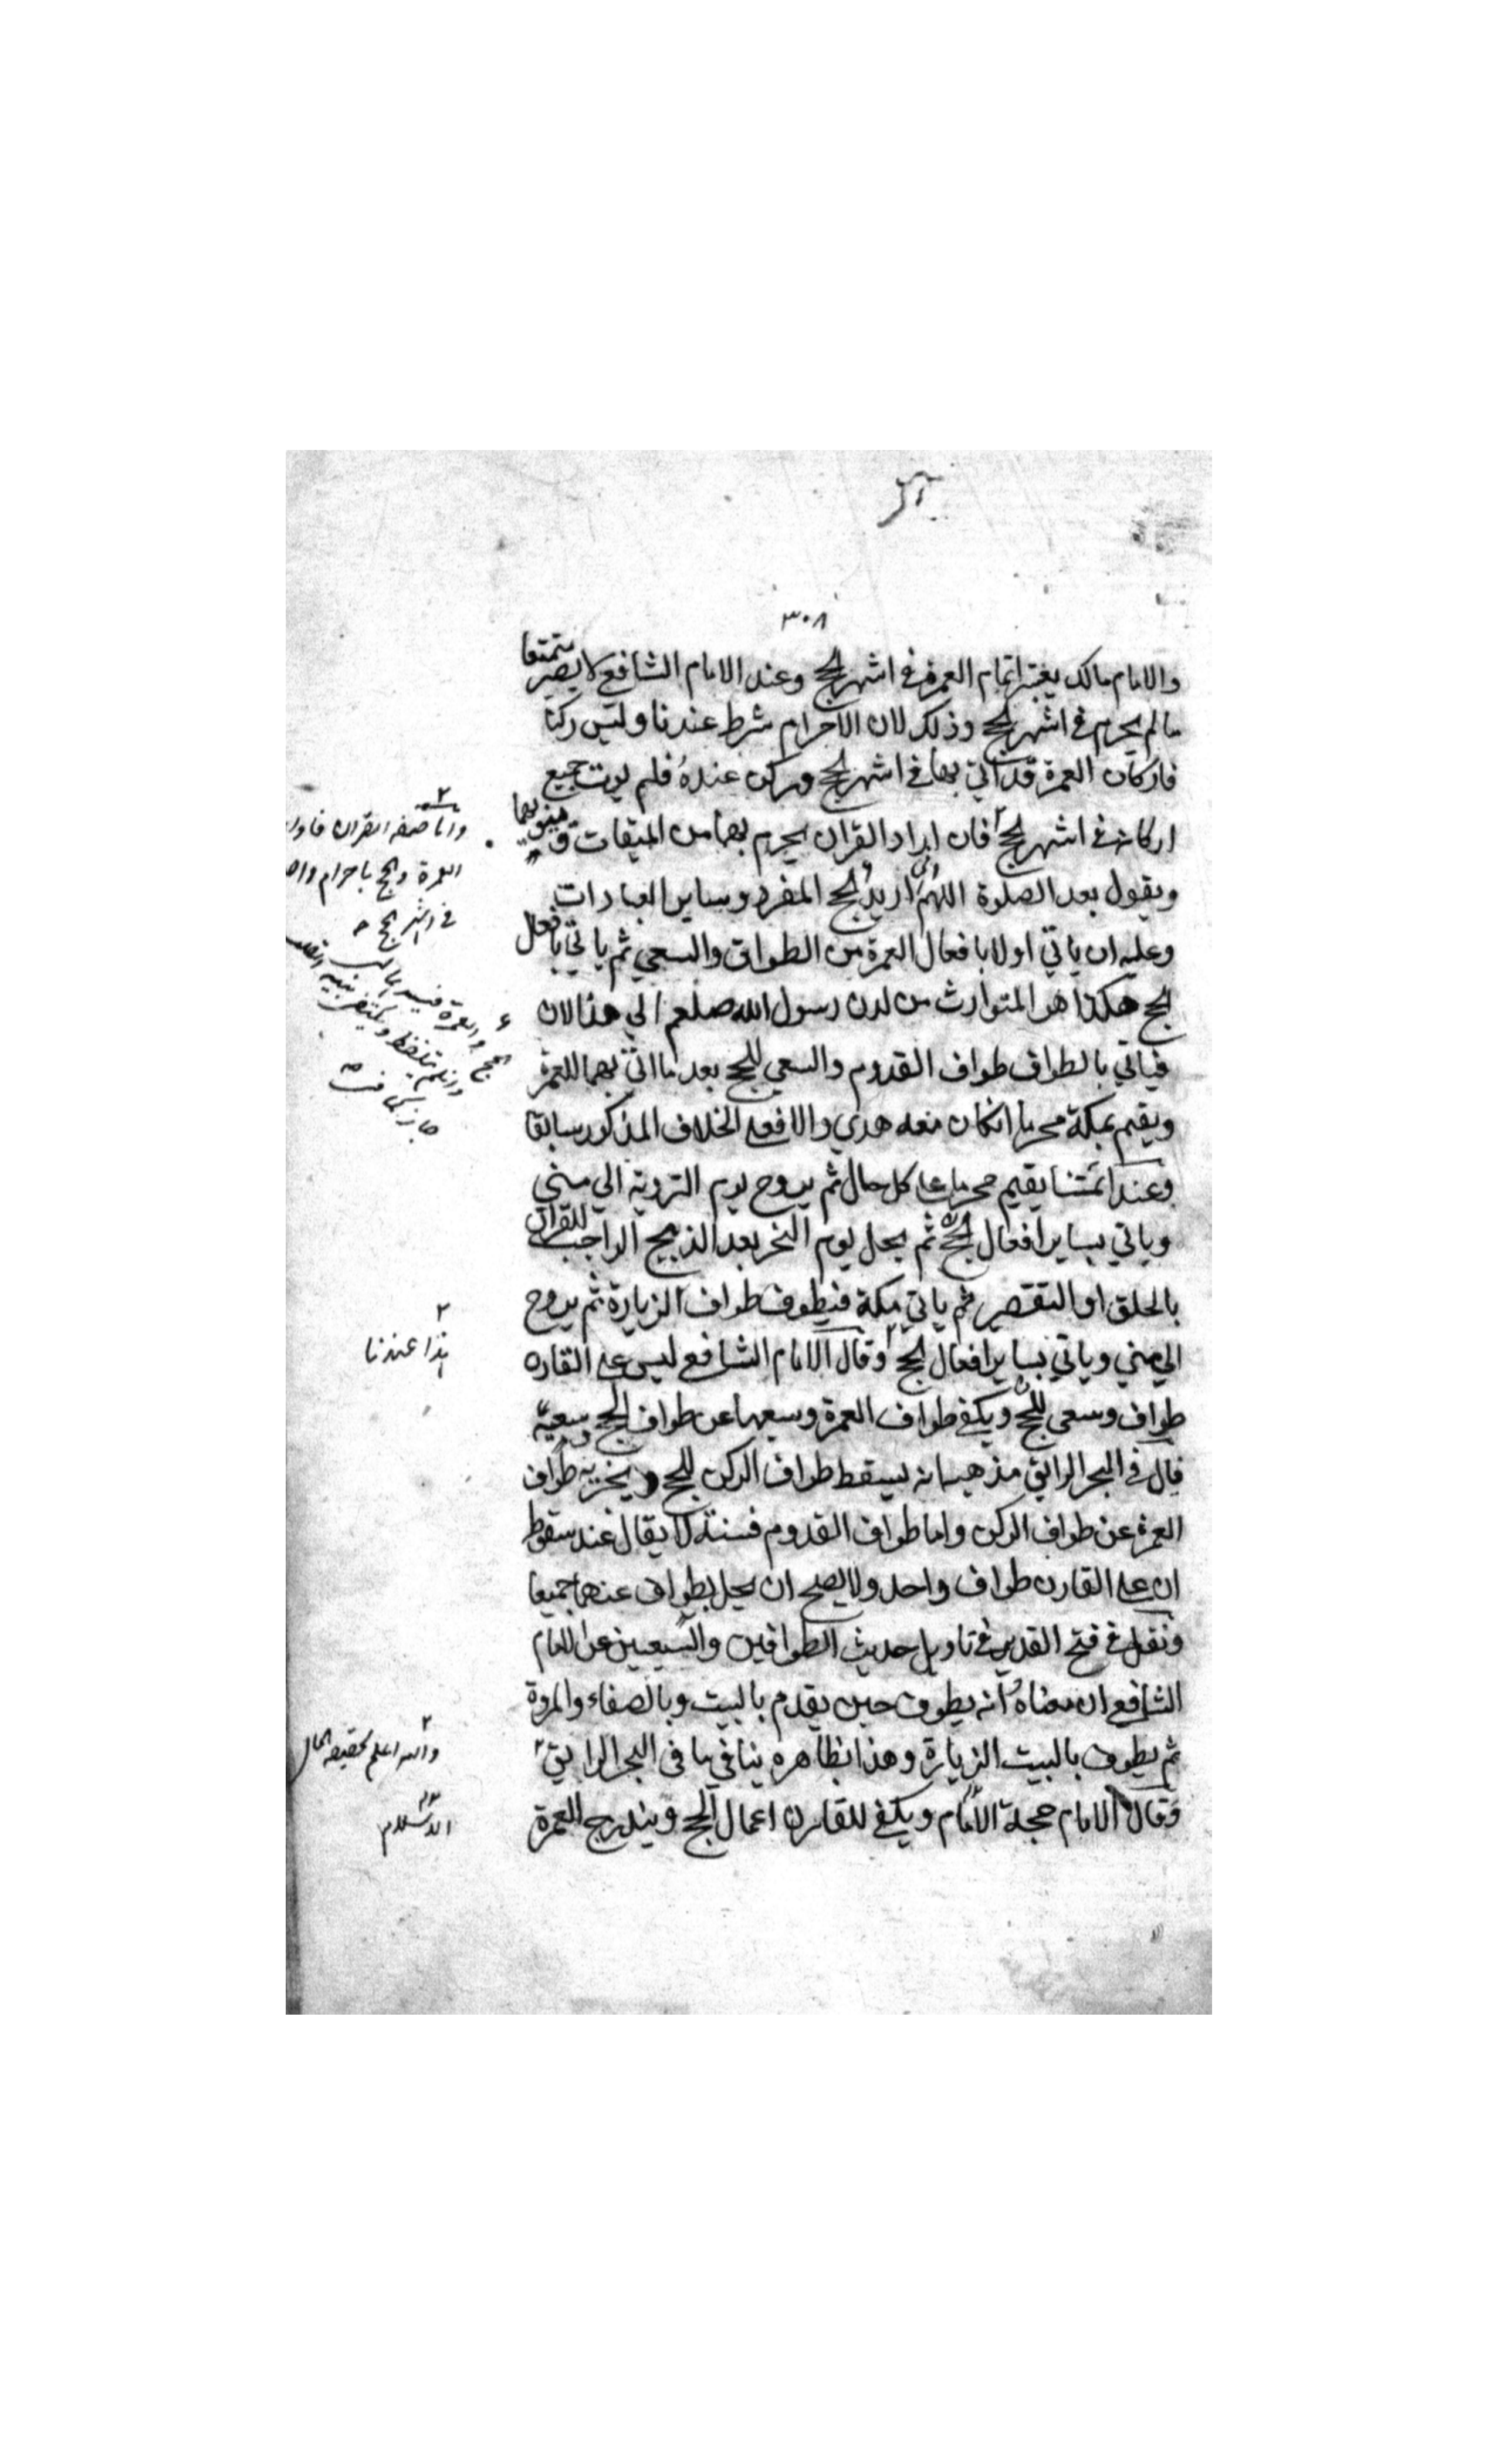 ٣٠٨
والامام مالك يعتبر اتمام العمرة في اشهر الحج وعند الامام الشافعي لا يصير متمتعا
ما لم يحرم في اشهر الحج وذلك لان الاحرام شرط عندنا وليس ركنا
فاركان العمرة قد اتي بها في اشهر الحج وركن عنده فلم يوت جميع
اركانه في اشهر الحج فان اراد القران يحرم بهما من الميقات فينويهما
ويقول بعد الصلوة اللهم اني اريد الحج المفرد وساير العبادات
وعليه ان ياتي اولا بافعال العمرة من الطواف والسعي ثم ياتي بافعال
الحج هكذا هو المتوارث من لدن رسول الله صلعم الي هذا الان
فياتي بالطواف طواف القدوم والسعي للحج بعد ما اتي بهما للعمرة
ويقيم بمكة محرما انكان معه هدي والا فعلي الخلاف المذكور سابقا
وعند ائمتنا يقيم محرما علي كل حال ثم يروح يوم التروية الي مني
وياتي بساير افعال الحج ثم يحل يوم النحر بعد الذبح الواجب للقران
بالحلق او التقصير ثم ياتي مكة فيطوف طواف الزيارة ثم يروح
الي مني وياتي بساير افعال الحج وقال الامام الشافعي ليس علي القارن
طواف وسعي للحج ويكفي طواف العمرة وسعيها عن طواف الحج وسعيه
قال في البحر الرايق مذهبه انه يسقط طواف الركن للحج ويجزيه طواف
العمرة عن طواف الركن واما طواف القدوم فسنة لا يقال عند سقوط
ان علي القارن طواف واحد ولا يصلح ان يحل بطواف عنهما جميعا
ونقل في فتح القدير في تاويل حديث الطوافين والسعيين عن الامام
الشافعي ان معناه انه يطوف حين يقدم بالبيت وبالصفاء والمروة
ثم يطوف بالبيت الزيارة وهذا بظاهره ينافي ما في البحر الرايق
وقال الامام حجة الامام ويكفي للقارن اعمال الحج ويندرج العمرة
واما صفة القران فاول
العمرة والحج باحرام
في اشهر الحج
الحج والعمرة
وان لم يتلفظ ويكتفي بنية
جاز
هذا عندنا
والله اعلم بحقيقة الحال
الاسلام